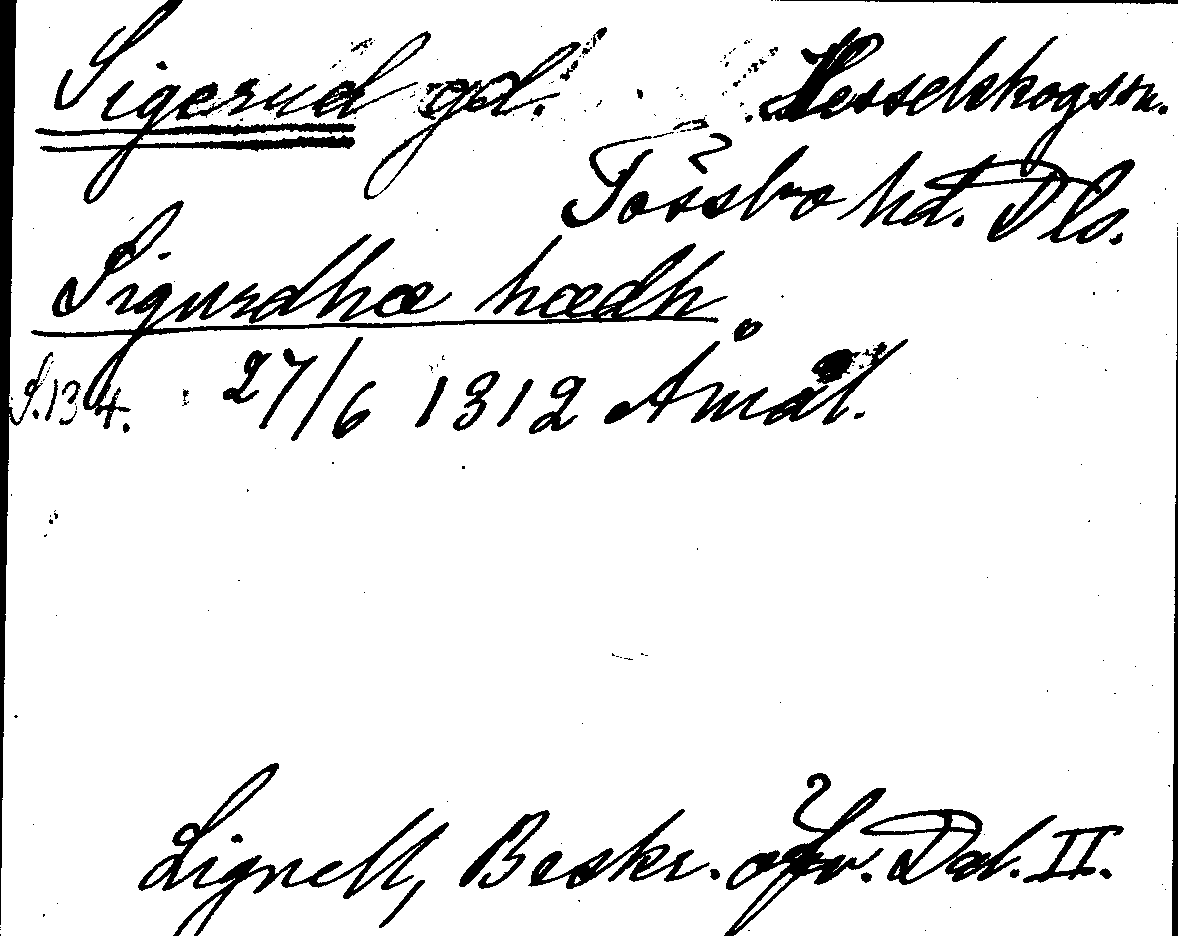 Sigerud gd. Hesselskogssn.
Tössbo hd. Dls.
Sigurdhæ hædh
S.134. 27/6 1312 Åmål.
Lignell, Beskr. öfv. Dal. II.